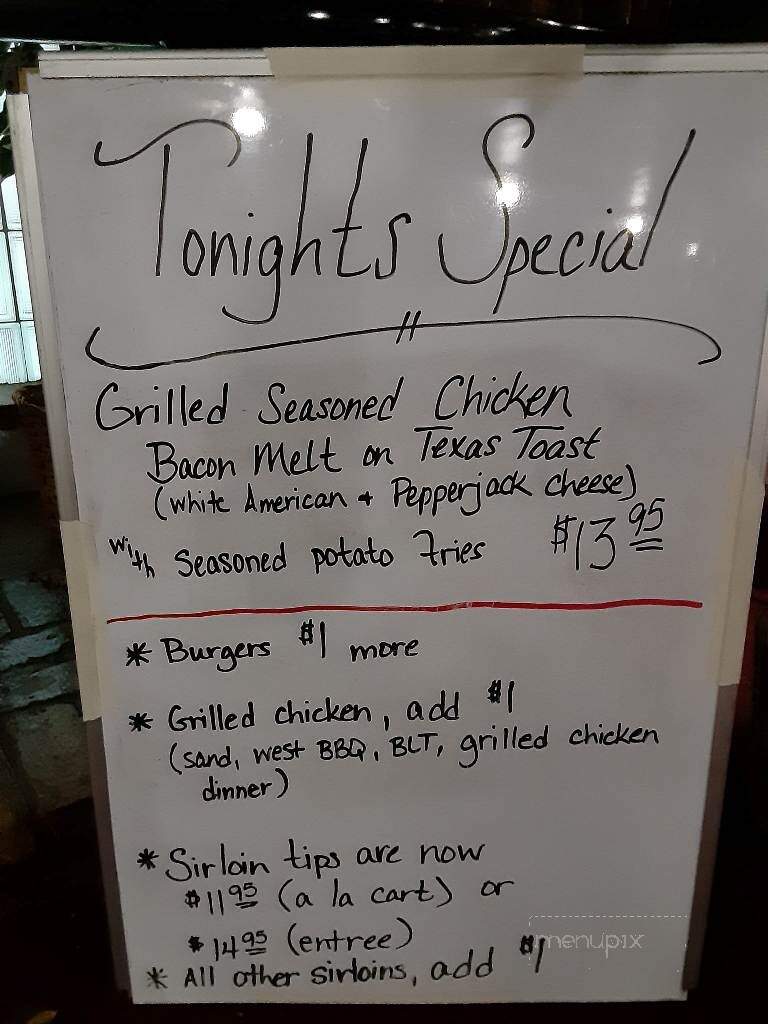 Tonights Special
Grilled Seasoned Chicken
Bacon Melt on Texas Toast
(white American + Pepperjack cheese)
with seasoned potato fries $13.95
* Burgers $1 more
* Grilled chicken, add $1
(sand, west BBQ, BLT, grilled chicken
dinner)
* Sirloin tips are now
$11.95 (a la cart) or
$14.95 (entree)
* All other sirloins, add $1
menupix